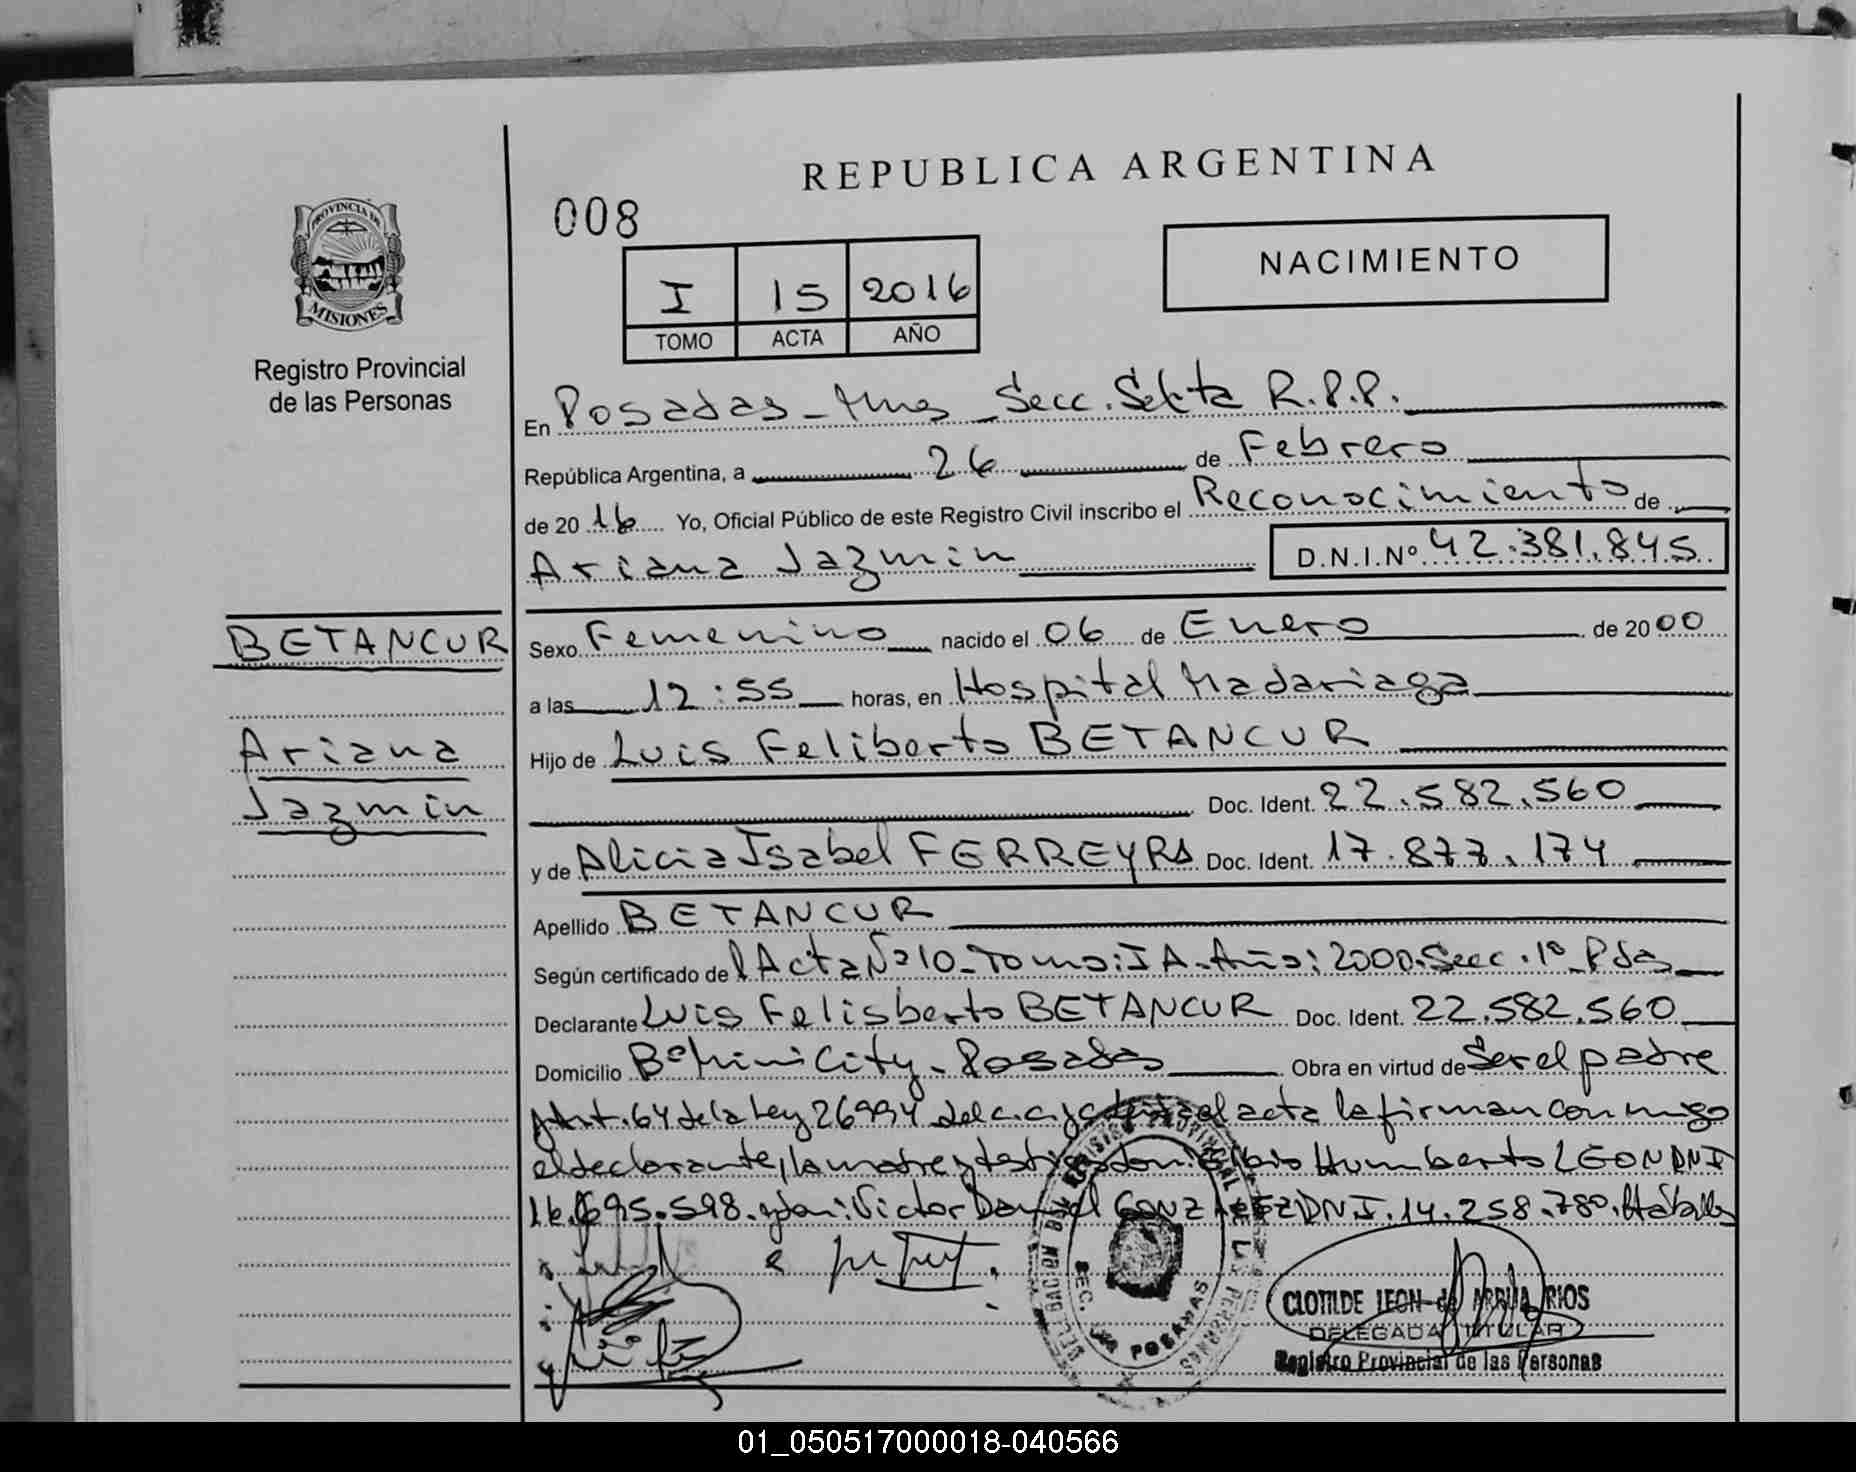 REPUBLICA ARGENTINA
008
NACIMIENTO
I 15 2016
TOMO ACTA AÑO
PROVINCIA DE
MISIONES
Registro Provincial
de las Personas
En Posadas - Mnes Secc. Sexta R.P.P.
República Argentina, a 26 de Febrero
de 2016 Yo, Oficial Público de este Registro Civil inscribo el Reconocimiento de
Ariana Jazmin D.N.I.Nº 42.381.845
BETANCUR
Ariana
Jazmin
Sexo Femenino nacido el 06 de Enero de 2000
a las 12:55 horas, en Hospital Madariaga
Hijo de Luis Feliberto BETANCUR
Doc. Ident. 22.582.560
y de Alicia Isabel FERREYRA Doc. Ident. 17.877.174
Apellido BETANCUR
Según certificado de l Acta Nº 10 - Tomo: I A - Año: 2000. Secc. 1º Pdas
Declarante Luis Felisberto BETANCUR Doc. Ident. 22.582.560
Domicilio Bº Mini City - Posadas Obra en virtud de Ser el padre
y Art. 64 de la Ley 26994 del c.c. y c. el acta la firman conmigo
el declarante, la madre y testigos don: Humberto LEON DNI
16.695.598. y don: Victor Daniel GONZALEZ DNI. 14.258.780.
DELEGACION DEL REGISTRO PROVINCIAL DE LAS PERSONAS
SEC. POSADAS
CLOTILDE LEON de ARRUA RIOS
DELEGADA TITULAR
Registro Provincial de las Personas
01_050517000018-040566